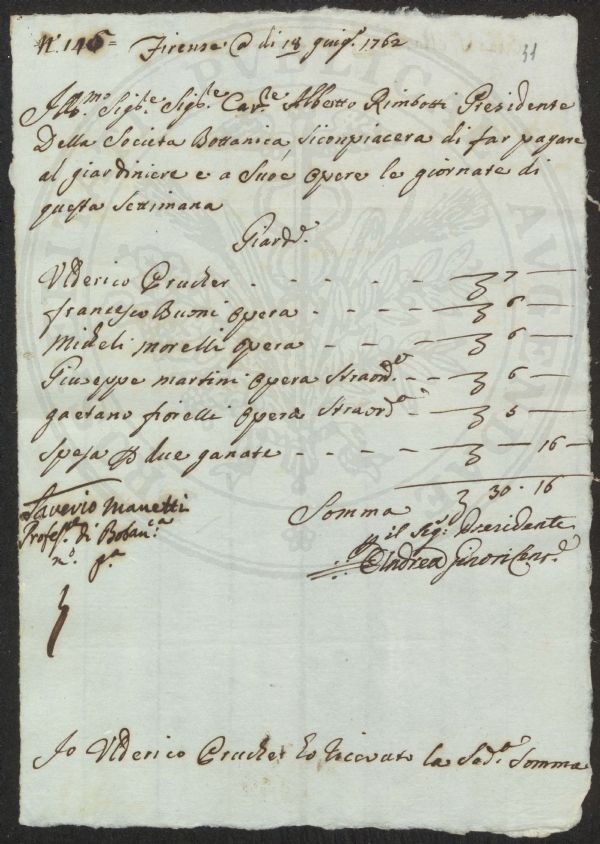 N.° 146 = Firenze @ di 18 giug.° 1762
31
Ill.mo Sig.re Sig.re Cav.re Alberto Rimbotti Presidente
Della Societa Bottanica, si conpiacera di far pagare
al giardiniere e a Suoe opere le giornate di
questa Settimana
Giard.e
Ulderico Prucher - - - - - 7 —
francesco Buoni opera - - - - 6 —
Micheli morelli opera - - - - 6 —
Giuseppe martini opera Straord.a - - 6 —
gaetano fiorelli opera Straord.a - - 5 —
spesa p due ganate - - - - - — 16 —
Somma 30 · 16
Saverio Manetti
Profess.e di Botan.ca
m.o p.a
p il Sig.r Presidente
Andrea Ginori Cens.e
Io Ulderico Prucher ho ricevuto la Sud.a Somma
PVBLIC
AVGENDAE